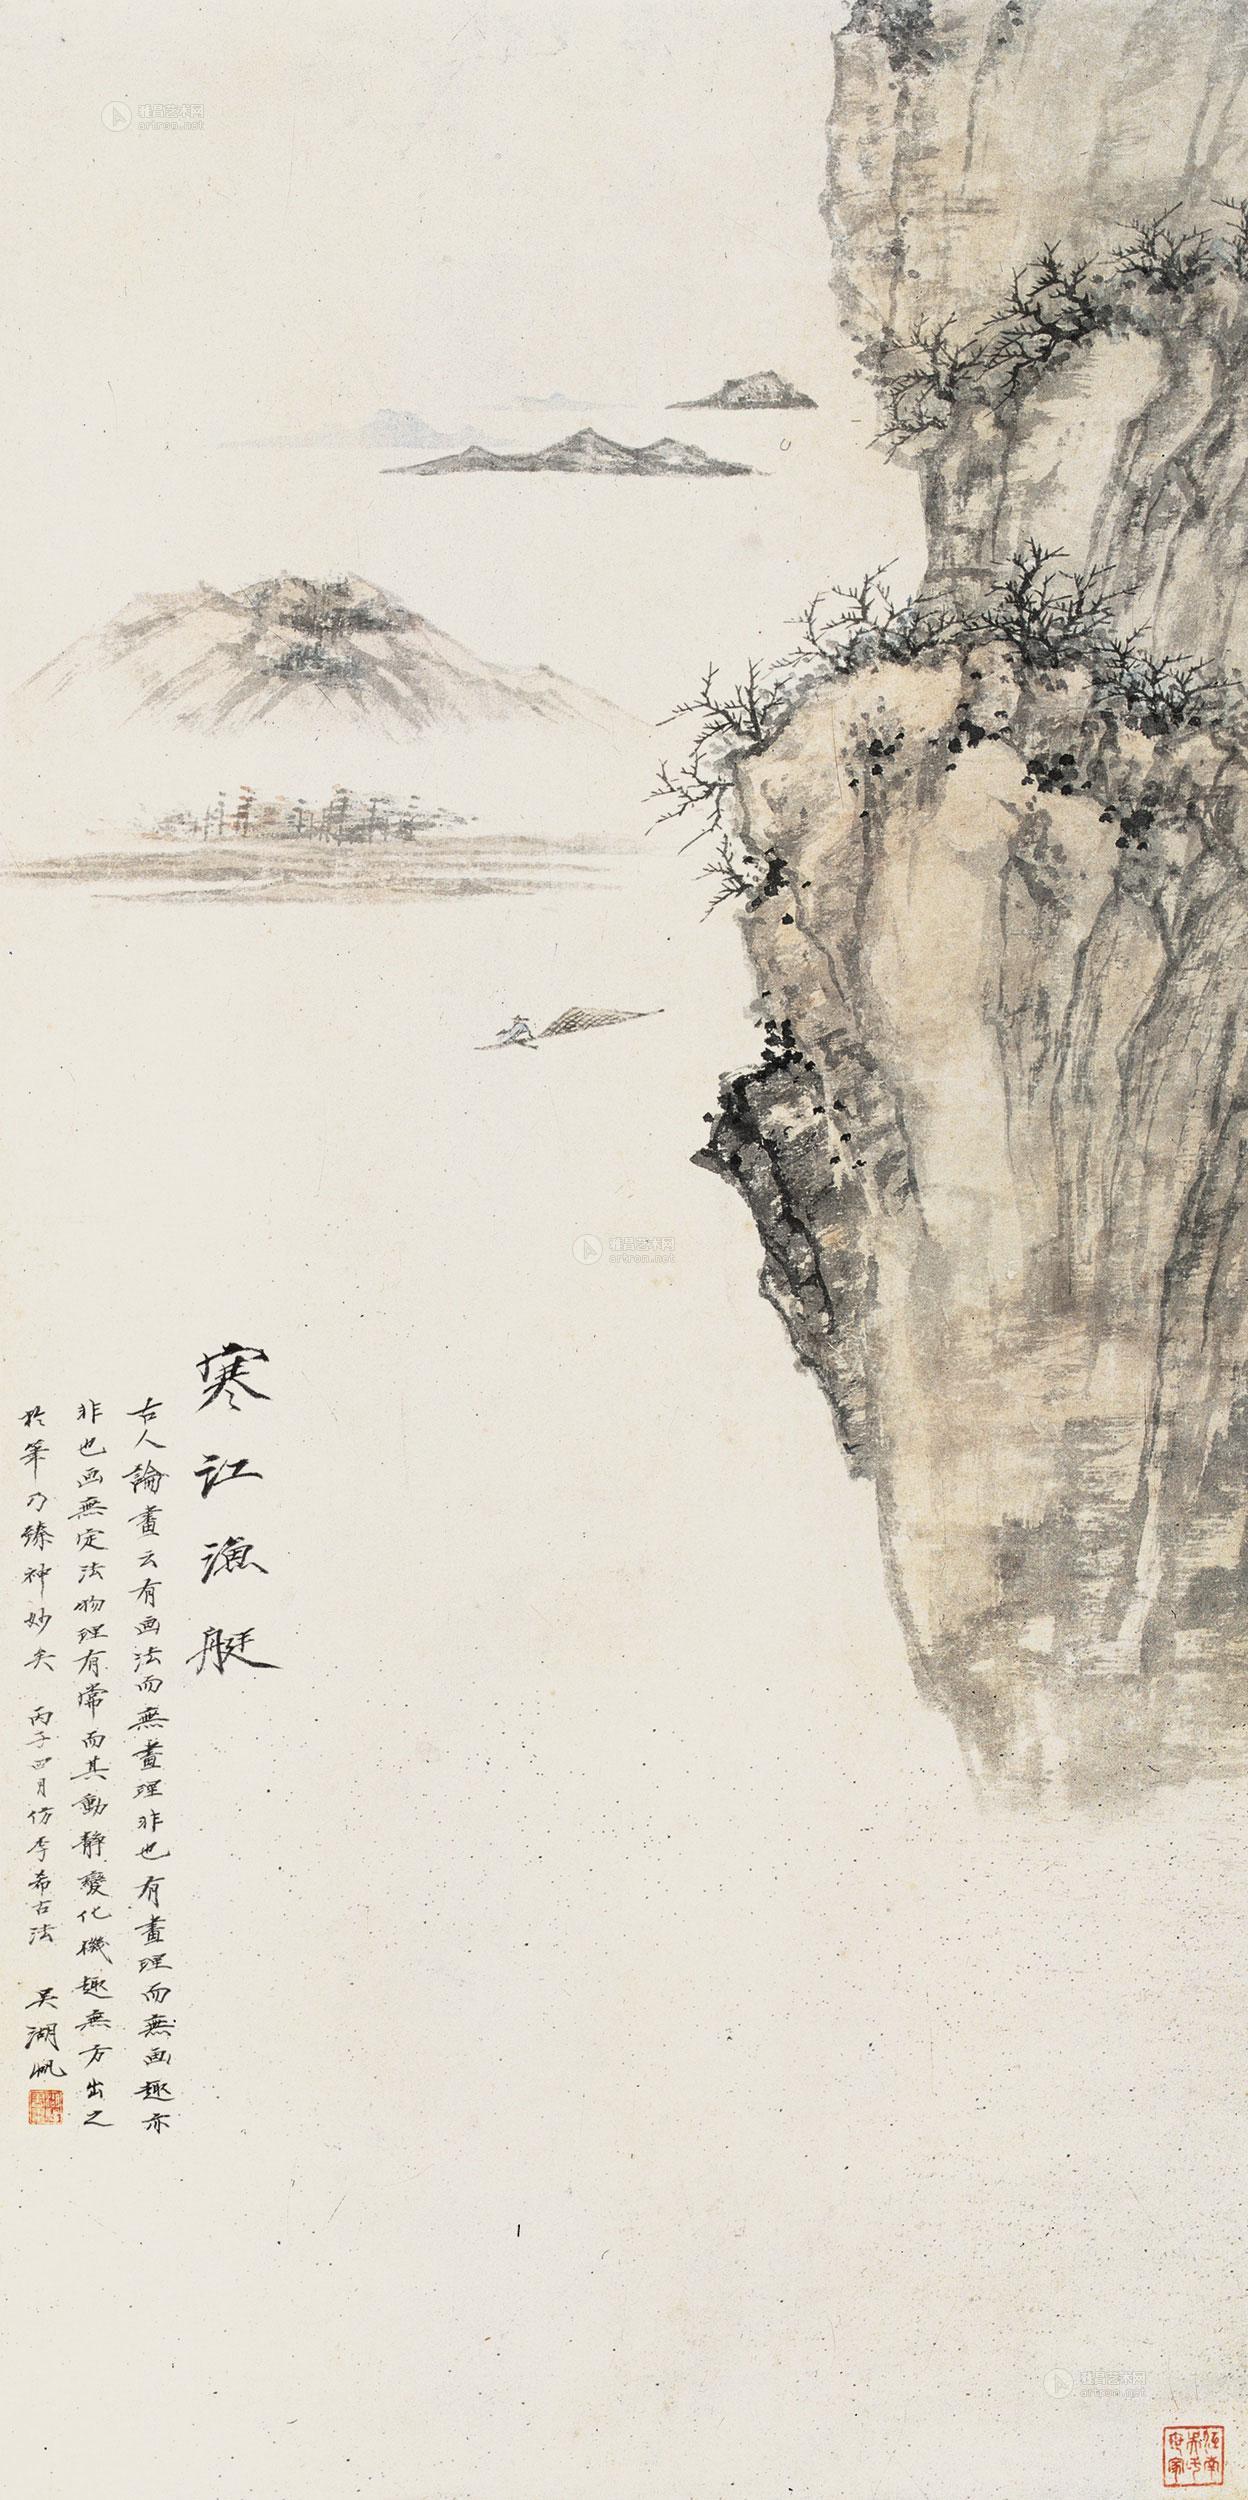 寒江漁艇
古人論畫云有画法而無畫理非也有畫理而無画趣亦
非也画無定法物理有常而其動静變化機趣無方出之
於筆乃臻神妙矣 丙子四月仿李希古法 吴湖帆
江南
吴氏
世家
雅昌艺术网
artron.net
雅昌艺术网
artron.net
雅昌艺术网
artron.net